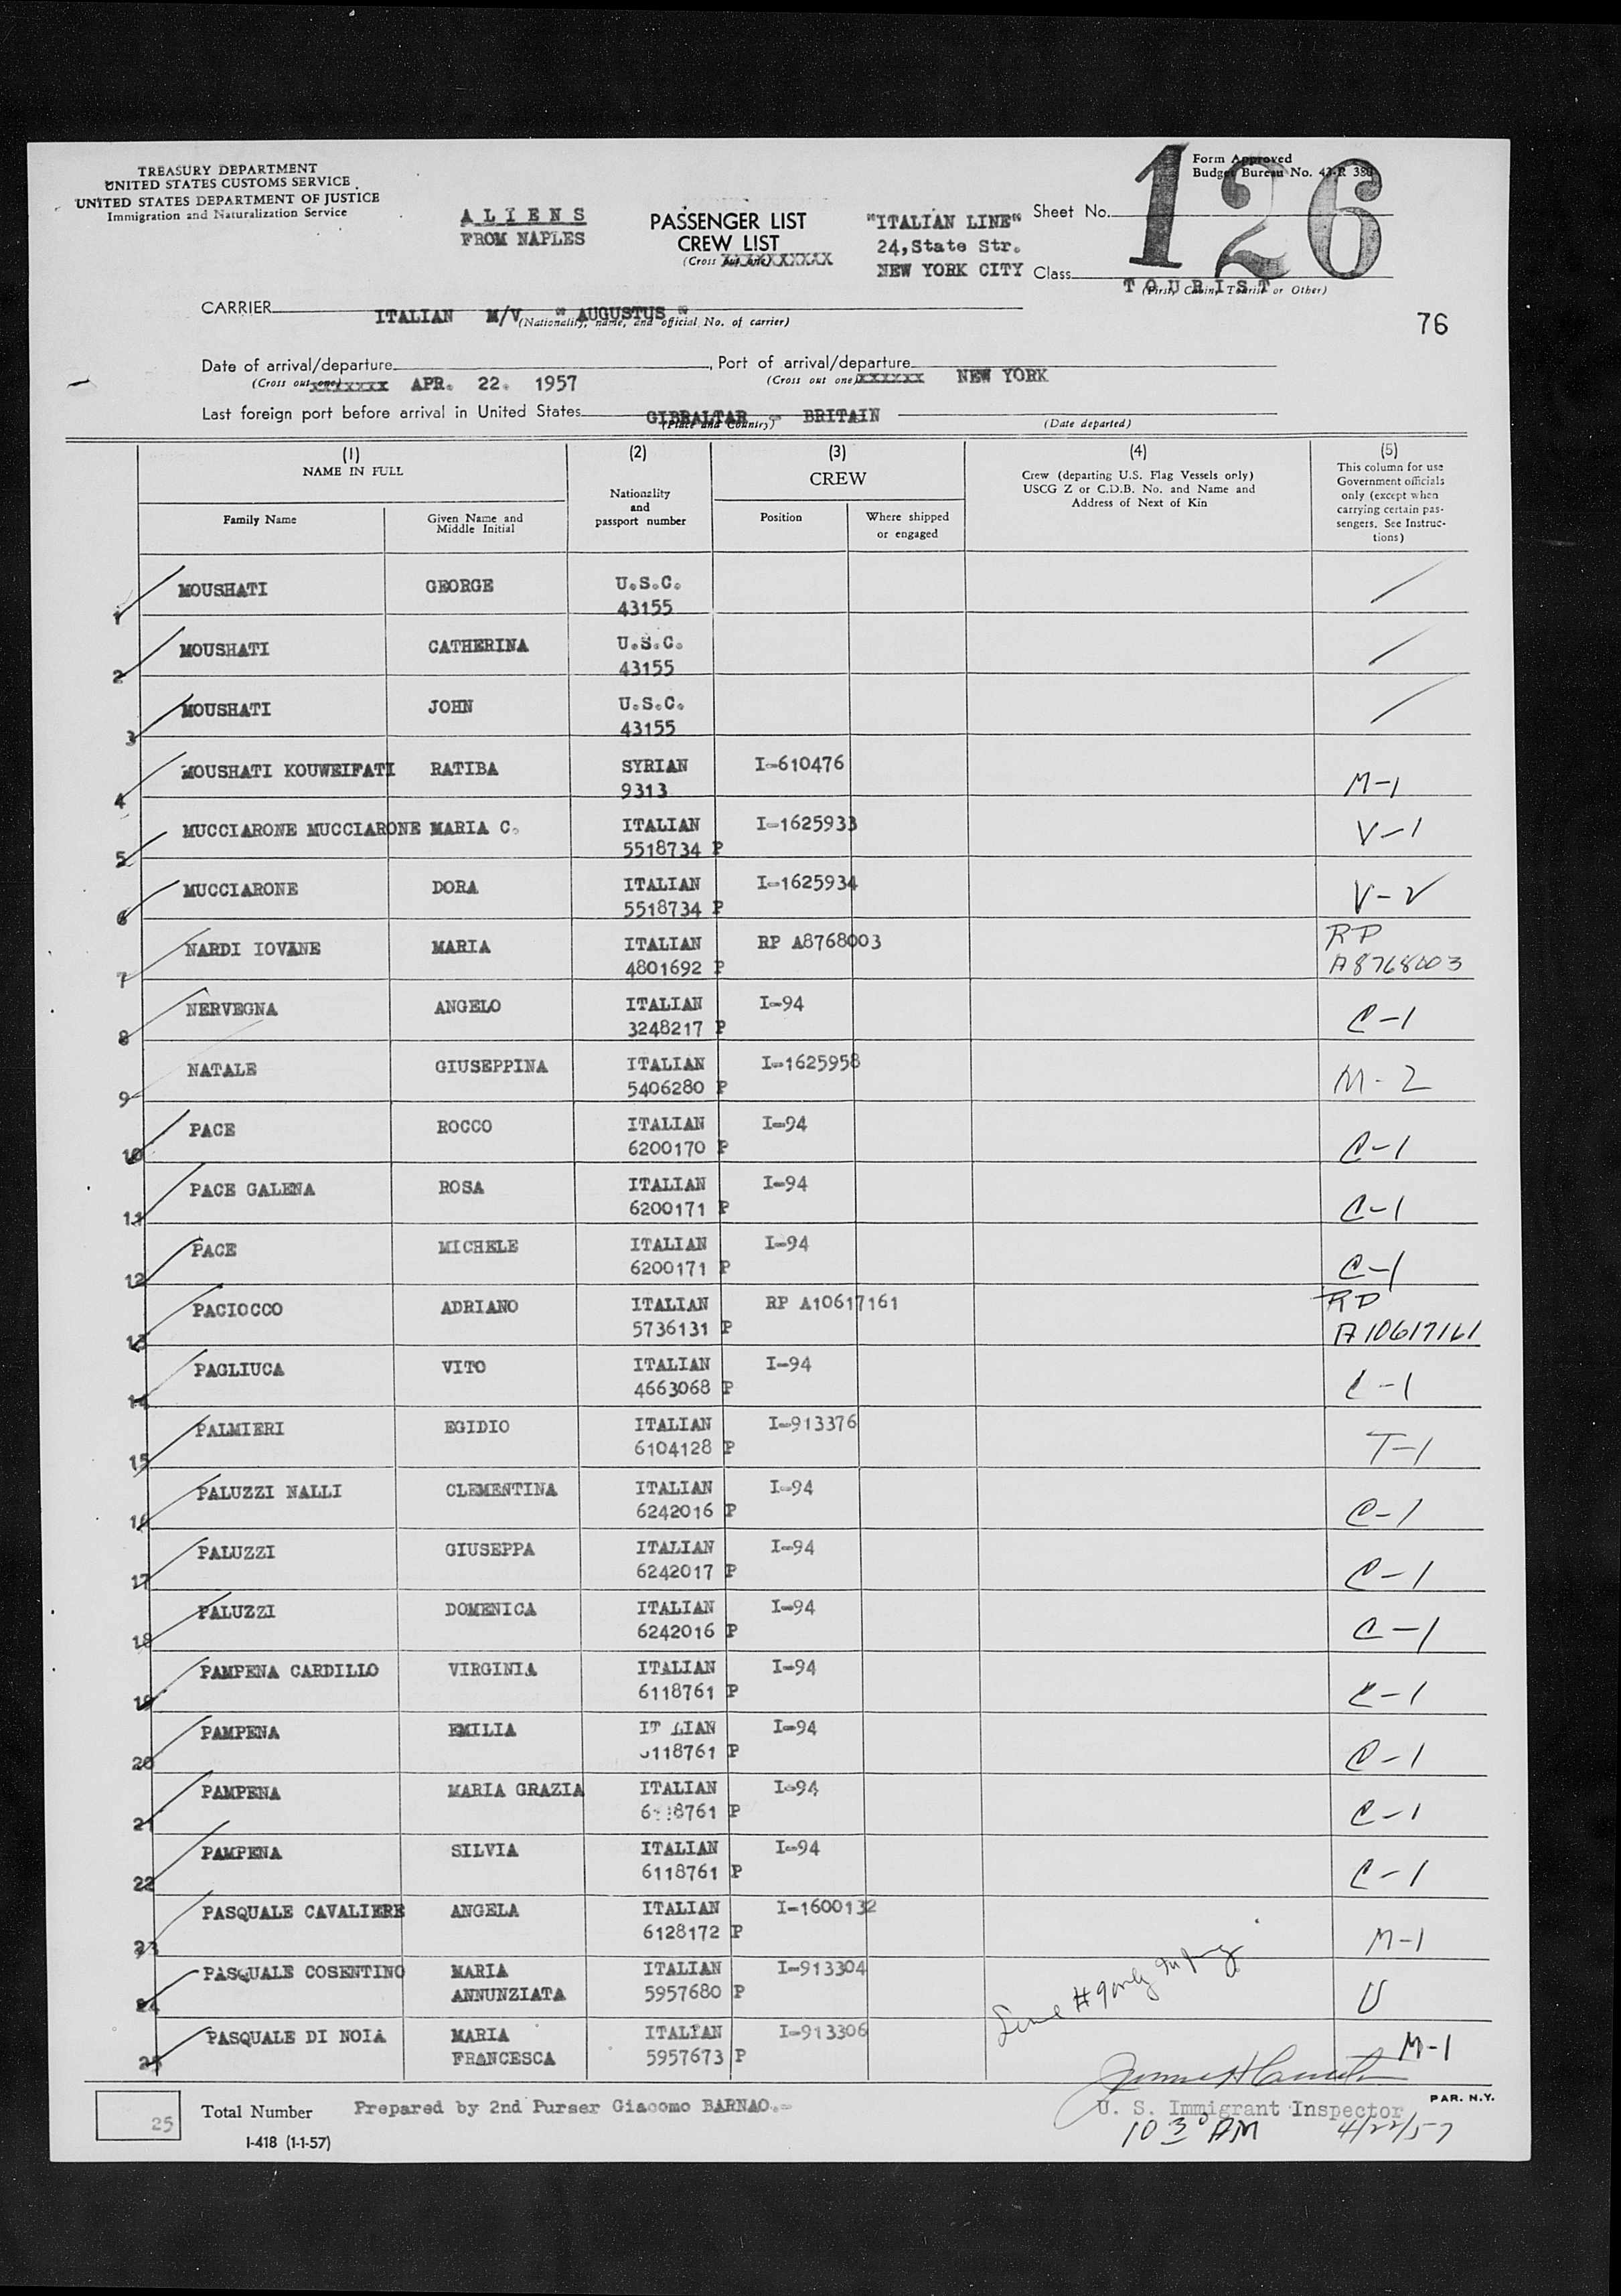 TREASURY DEPARTMENT
UNITED STATES CUSTOMS SERVICE
UNITED STATES DEPARTMENT OF JUSTICE
Immigration and Naturalization Service
ALIENS
FROM NAPLES
PASSENGER LIST
CREW LIST
(Cross out one) XXXXXXXXX
"ITALIAN LINE"
24, State Str.
NEW YORK CITY
Form Approved
Budget Bureau No. 43-R 380
Sheet No.
126
Class
TOURIST
(First, Cabin, Tourist or Other)
76
CARRIER
ITALIAN M/V " AUGUSTUS "
(Nationality, name, and official No. of carrier)
Date of arrival/departure, Port of arrival/departure
(Cross out one) XXXXXXX APR. 22. 1957 (Cross out one) XXXXXX NEW YORK
Last foreign port before arrival in United States GIBRALTAR - BRITAIN
(Place and Country) (Date departed)
(1) (2) (3) (4) (5)
NAME IN FULL
Family Name
Given Name and
Middle Initial
Nationality
and
passport number
CREW
Position
Where shipped
or engaged
Crew (departing U.S. Flag Vessels only)
USCG Z or C.D.B. No. and Name and
Address of Next of Kin
This column for use
Government officials
only (except when
carrying certain pas-
sengers. See Instruc-
tions)
MOUSHATI GEORGE U.S.C.
1 43155
MOUSHATI CATHERINA U.S.C.
2 43155
MOUSHATI JOHN U.S.C.
3 43155
MOUSHATI KOUWEIFATI RATIBA SYRIAN I-610476
4 9313 M-1
MUCCIARONE MUCCIARONE MARIA C. ITALIAN I-1625933 V-1
5 5518734 P
MUCCIARONE DORA ITALIAN I-1625934 V-2
6 5518734 P
NARDI IOVANE MARIA ITALIAN RP A8768003 RP
7 4801692 P A8768003
NERVEGNA ANGELO ITALIAN I-94 C-1
8 3248217 P
NATALE GIUSEPPINA ITALIAN I-1625958 M-2
9 5406280 P
PACE ROCCO ITALIAN I-94
10 6200170 P C-1
PACE GALENA ROSA ITALIAN I-94
11 6200171 P C-1
PACE MICHELE ITALIAN I-94
12 6200171 P C-1
PACIOCCO ADRIANO ITALIAN RP A10617161 RP
13 5736131 P A10617161
PAGLIUCA VITO ITALIAN I-94
14 4663068 P C-1
PALMIERI EGIDIO ITALIAN I-913376
15 6104128 P T-1
PALUZZI NALLI CLEMENTINA ITALIAN I-94
16 6242016 P C-1
PALUZZI GIUSEPPA ITALIAN I-94
17 6242017 P C-1
PALUZZI DOMENICA ITALIAN I-94
18 6242016 P C-1
PAMPENA CARDILLO VIRGINIA ITALIAN I-94
19 6118761 P C-1
PAMPENA EMILIA ITALIAN I-94
20 6118761 P C-1
PAMPENA MARIA GRAZIA ITALIAN I-94
21 6118761 P C-1
PAMPENA SILVIA ITALIAN I-94
22 6118761 P C-1
PASQUALE CAVALIERE ANGELA ITALIAN I-1600132
23 6128172 P M-1
PASQUALE COSENTINO MARIA ITALIAN I-913304
24 ANNUNZIATA 5957680 P U
Line #9 only
PASQUALE DI NOIA MARIA ITALIAN I-913306 M-1
25 FRANCESCA 5957673 P
PAR. N.Y.
25 Total Number Prepared by 2nd Purser Giacomo BARNAO.-
U. S. Immigrant Inspector
I-418 (1-1-57)
10 30 AM 4/22/57